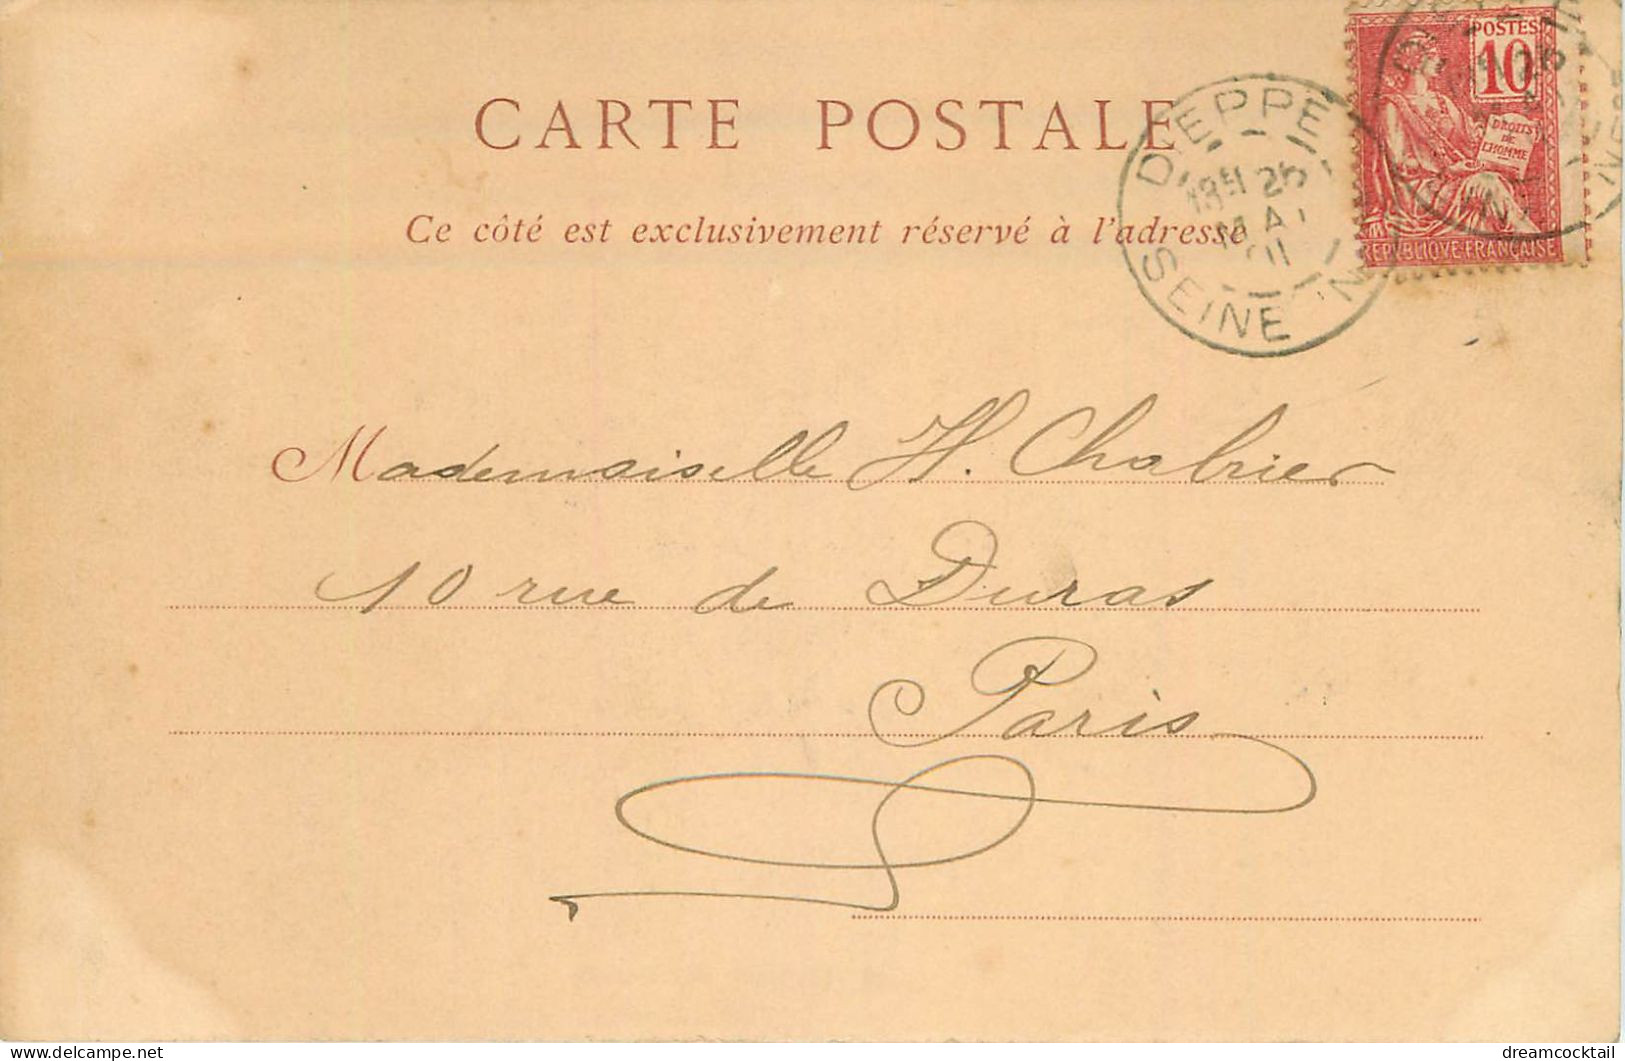 CARTE POSTALE
Ce côté est exclusivement réservé à l'adresse
POSTES
10
DROITS
DE
L'HOMME
REPVBLIQVE FRANÇAISE
DIEPPE
25
MAI
01
SEINE INF
Mademoiselle H. Chabrier
10 rue de Duras
Paris
dreamcocktail